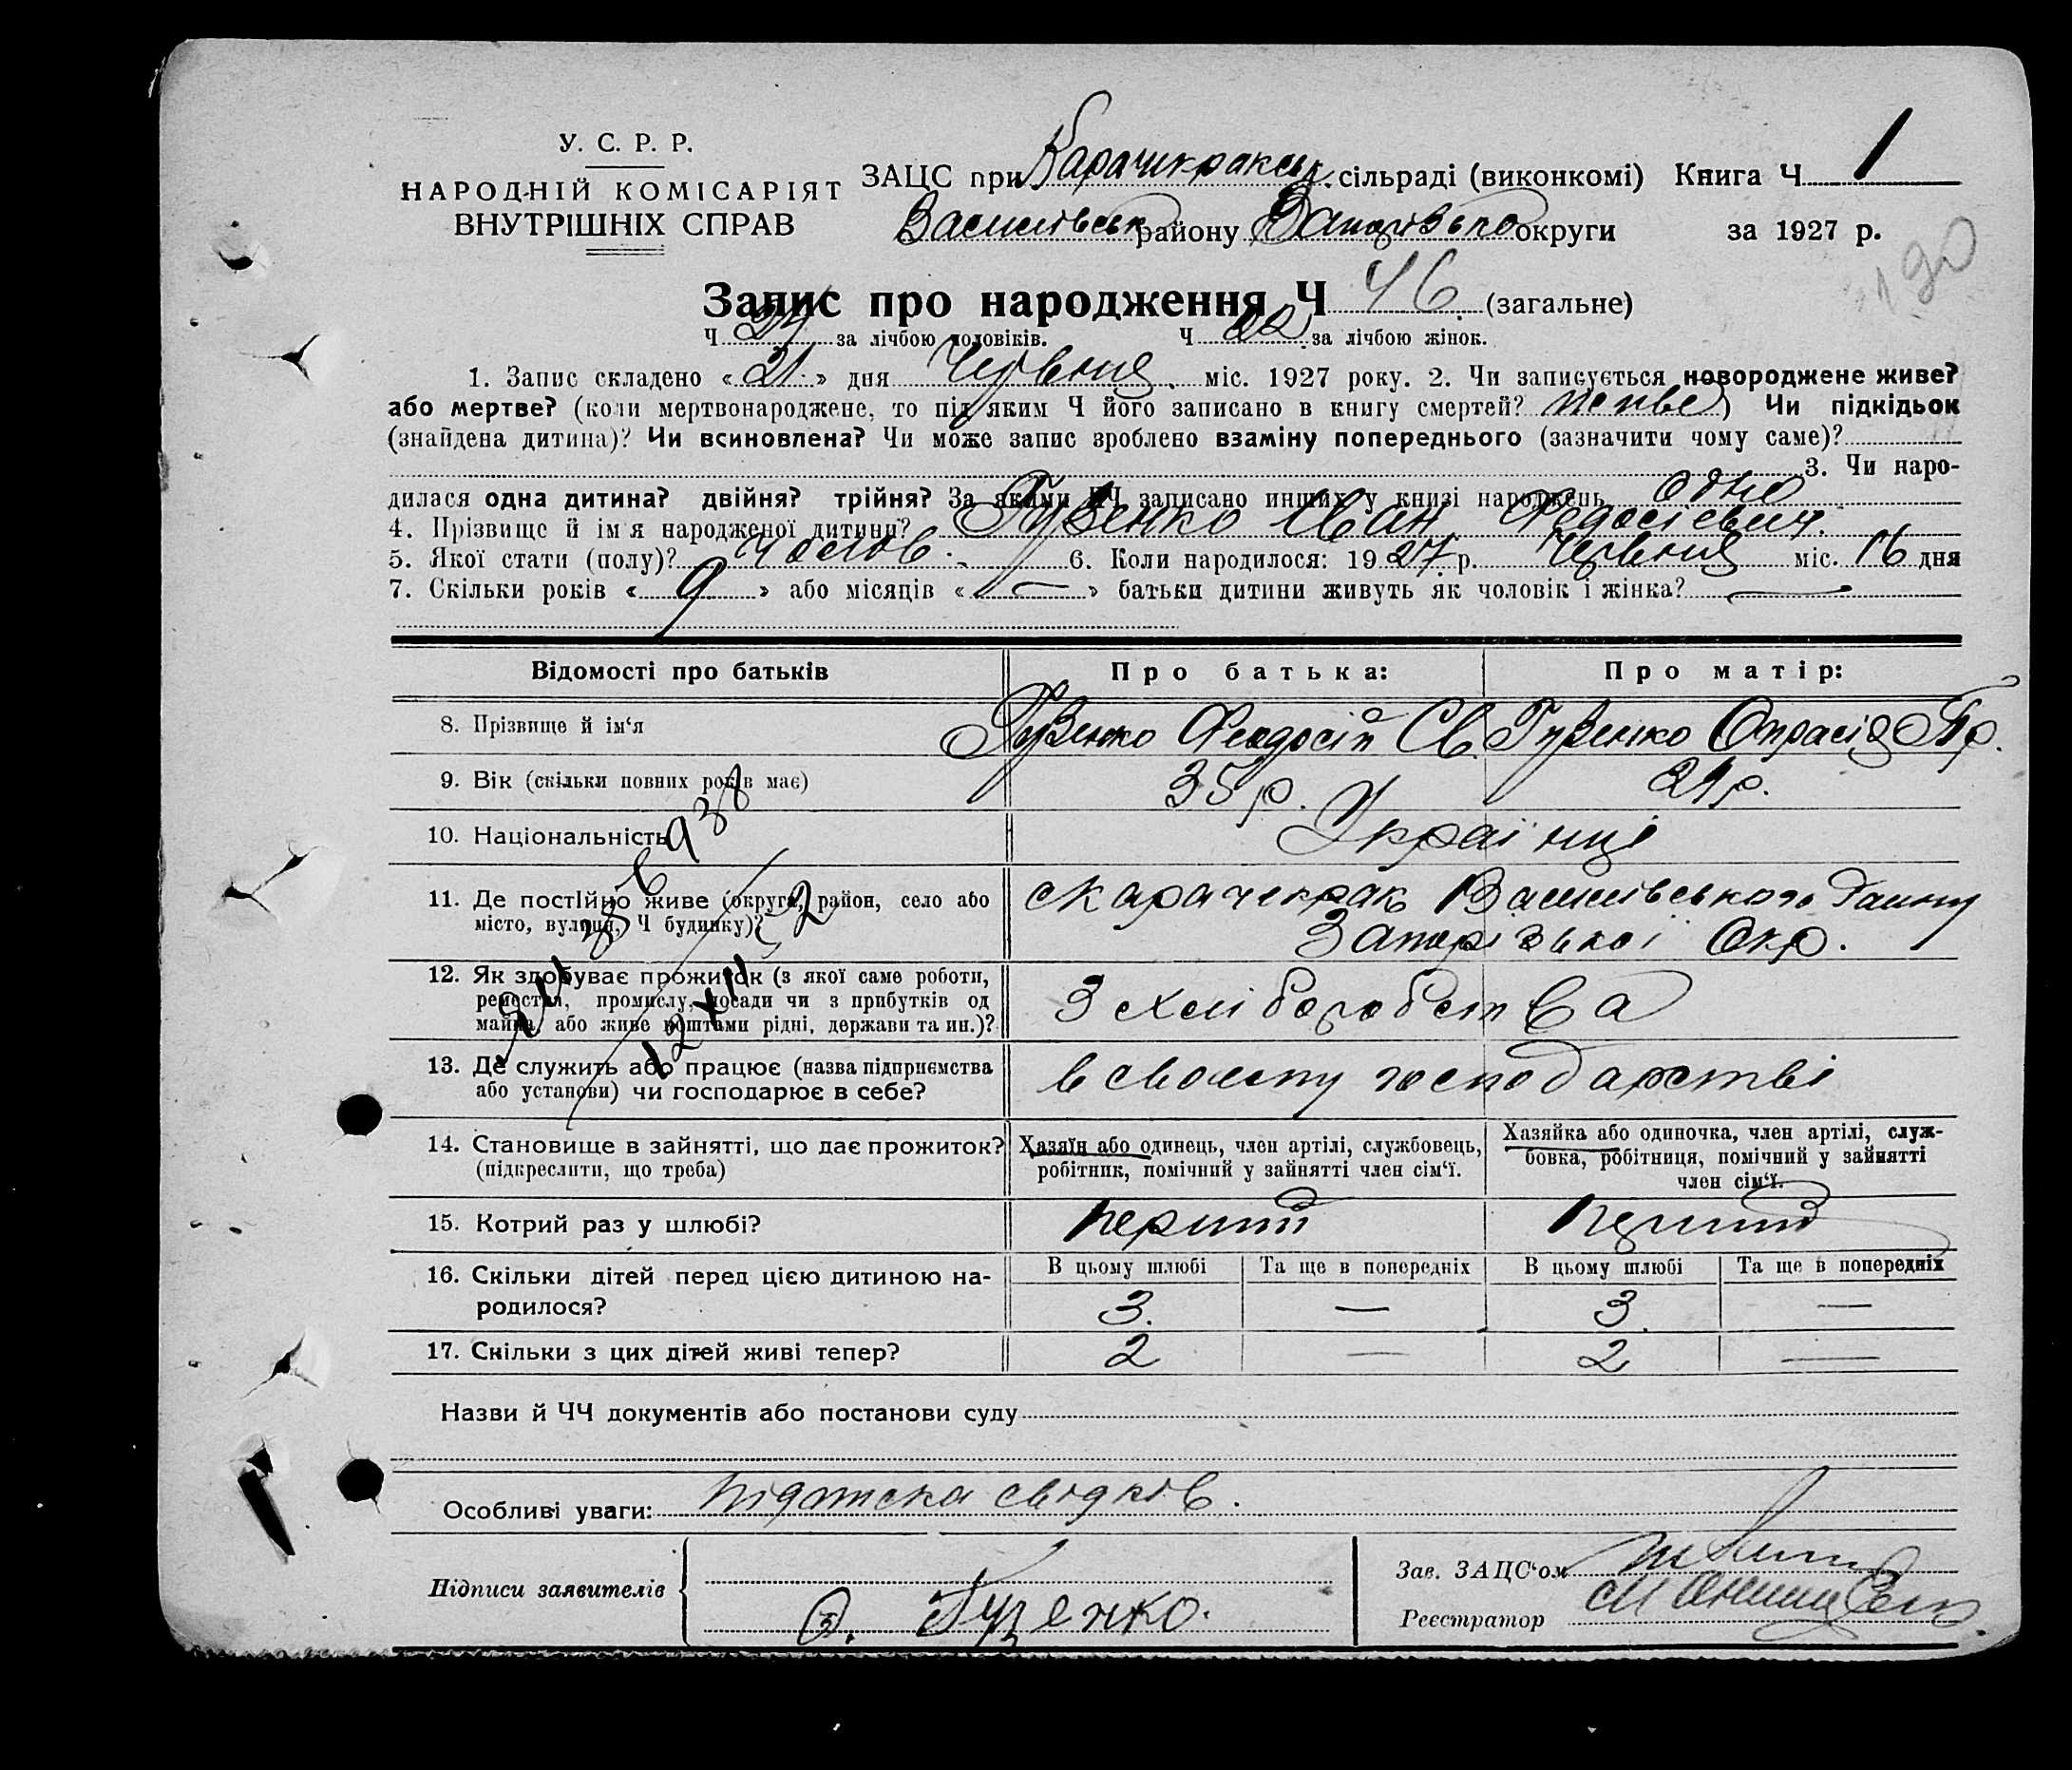 У. С. Р. Р.
НАРОДНІЙ КОМІСАРІЯТ
ВНУТРІШНІХ СПРАВ
ЗАЦС при Карачикракськ. сільраді (виконкомі) Книга Ч 1
Василівськ району Запорізької округи за 1927 р.
190
Запис про народження Ч 46. (загальне)
Ч 24 за лічбою чоловіків. Ч 22 за лічбою жінок.
1. Запис складено « 21. » дня Червня міс. 1927 року. 2. Чи записується новороджене живе?
або мертве? (коли мертвонароджене, то під яким Ч його записано в книгу смертей? ) Чи підкідьок
(знайдена дитина)? Чи всиновлена? Чи може запис зроблено взаміну попереднього (зазначити чому саме)?
3. Чи наро-
дилася одна дитина? двійня? трійня? За якими ЧЧ записано инших у книзі народжень одно
4. Прізвище й ім'я народженої дитини? Гузенко Іван Федосієвич.
5. Якої стати (полу)? чолов. 6. Коли народилося: 1927 р. Червня міс. 16 дня
7. Скільки років « 9 » або місяців « — » батьки дитини живуть як чоловік і жінка? —
Відомості про батьків Про батька: Про матір:
8. Прізвище й ім'я Гузенко Феодосій Св. Гузенко Опрасія Пр.
9. Вік (скільки повних років має) 35 р. 29 р.
10. Національність Українці
11. Де постійно живе (округа, район, село або с Карачекрак Василівського Району
місто, вулиця, Ч будинку)? Запорізької Окр.
12. Як здобуває прожиток (з якої саме роботи,
ремества, промислу, посади чи з прибутків од З хліборобства
майна, або живе коштами рідні, держави та ин.)?
13. Де служить або працює (назва підприємства в своєму господарстві
або установи) чи господарює в себе?
14. Становище в зайнятті, що дає прожиток? Хазяїн або одинець, член артілі, службовець, Хазяйка або одиночка, член артілі, служ-
(підкреслити, що треба) робітник, помічний у зайнятті член сім'ї. бовка, робітниця, помічний у зайнятті
член сім'ї.
15. Котрий раз у шлюбі? перший перший
16. Скільки дітей перед цією дитиною на- В цьому шлюбі Та ще в попередніх В цьому шлюбі Та ще в попередніх
родилося? 3. — 3. —
17. Скільки з цих дітей живі тепер? 2 — 2 —
Назви й ЧЧ документів або постанови суду
Особливі уваги: підписка свідків.
Підписи заявителів Ф. Гузенко.
Зав. ЗАЦС'ом
Реєстратор